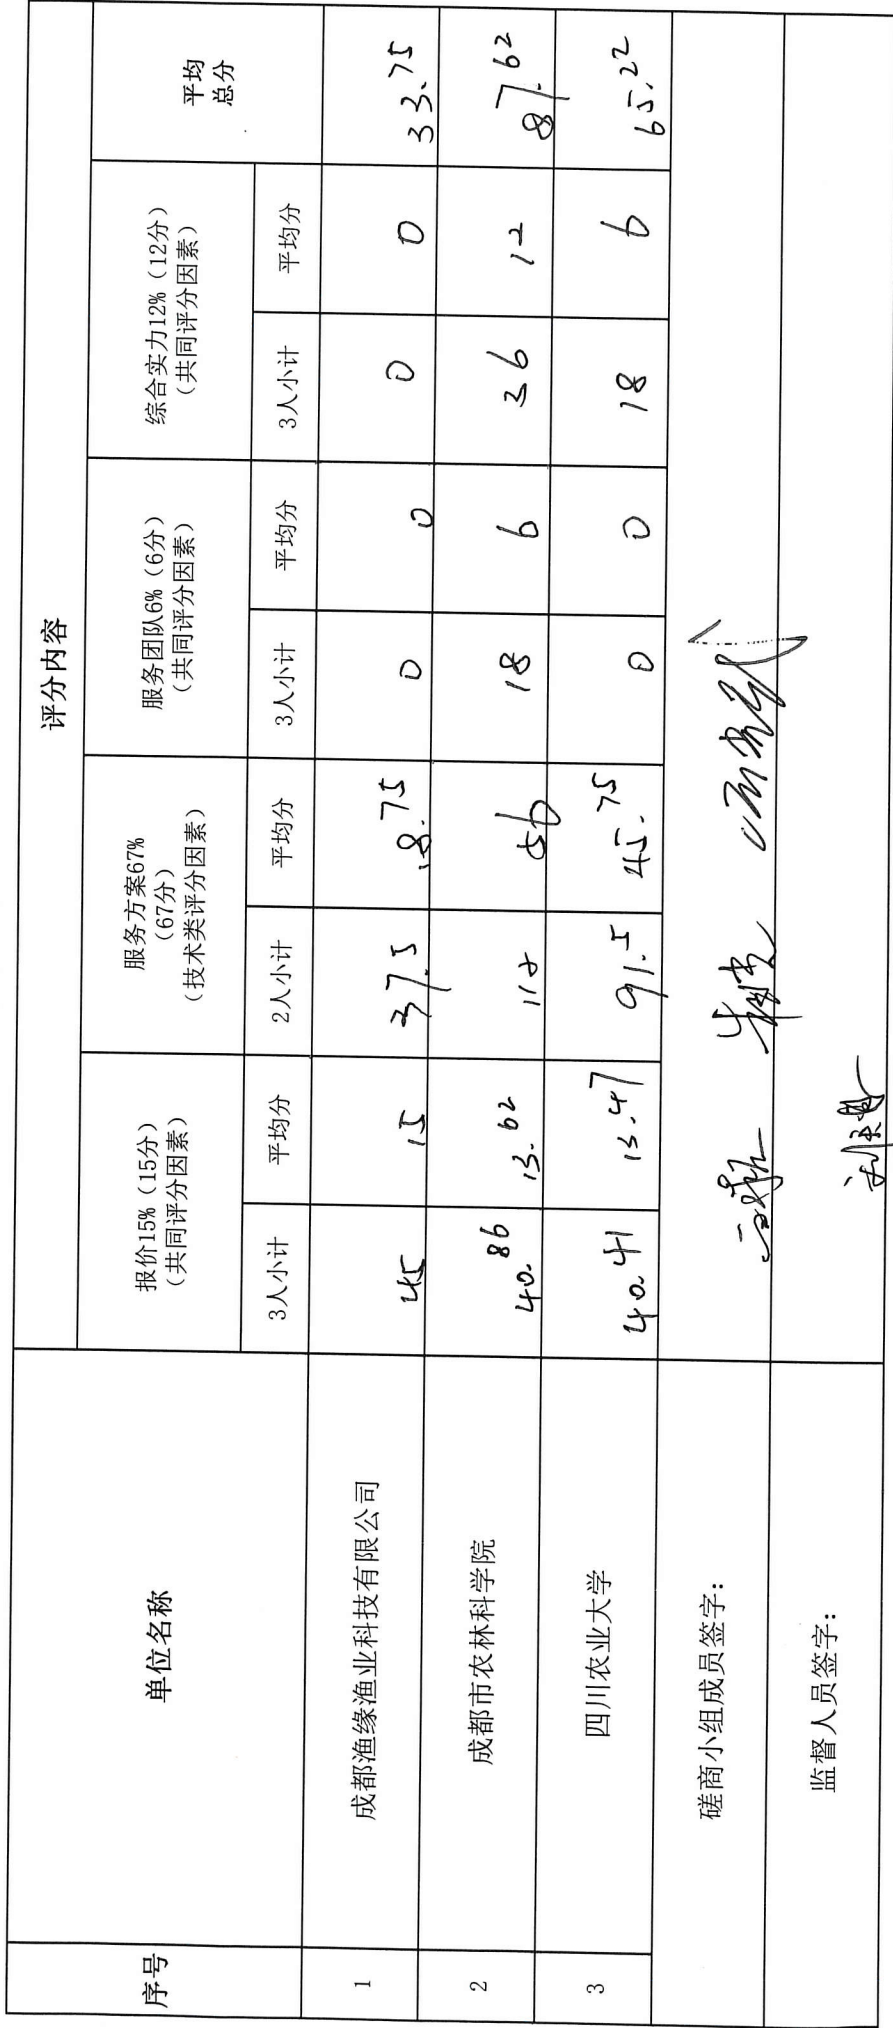 序号
单位名称
评分内容
报价15%（15分）
（共同评分因素）
服务方案67%
（67分）
（技术类评分因素）
服务团队6%（6分）
（共同评分因素）
综合实力12%（12分）
（共同评分因素）
平均
总分
3人小计
平均分
2人小计
平均分
3人小计
平均分
3人小计
平均分
1
成都渔缘渔业科技有限公司
45
15
37.5
18.75
0
0
0
0
33.75
2
成都市农林科学院
40.86
13.62
112
56
18
6
36
12
87.62
3
四川农业大学
40.41
13.47
91.5
45.75
0
0
18
6
65.22
磋商小组成员签字：
监督人员签字：